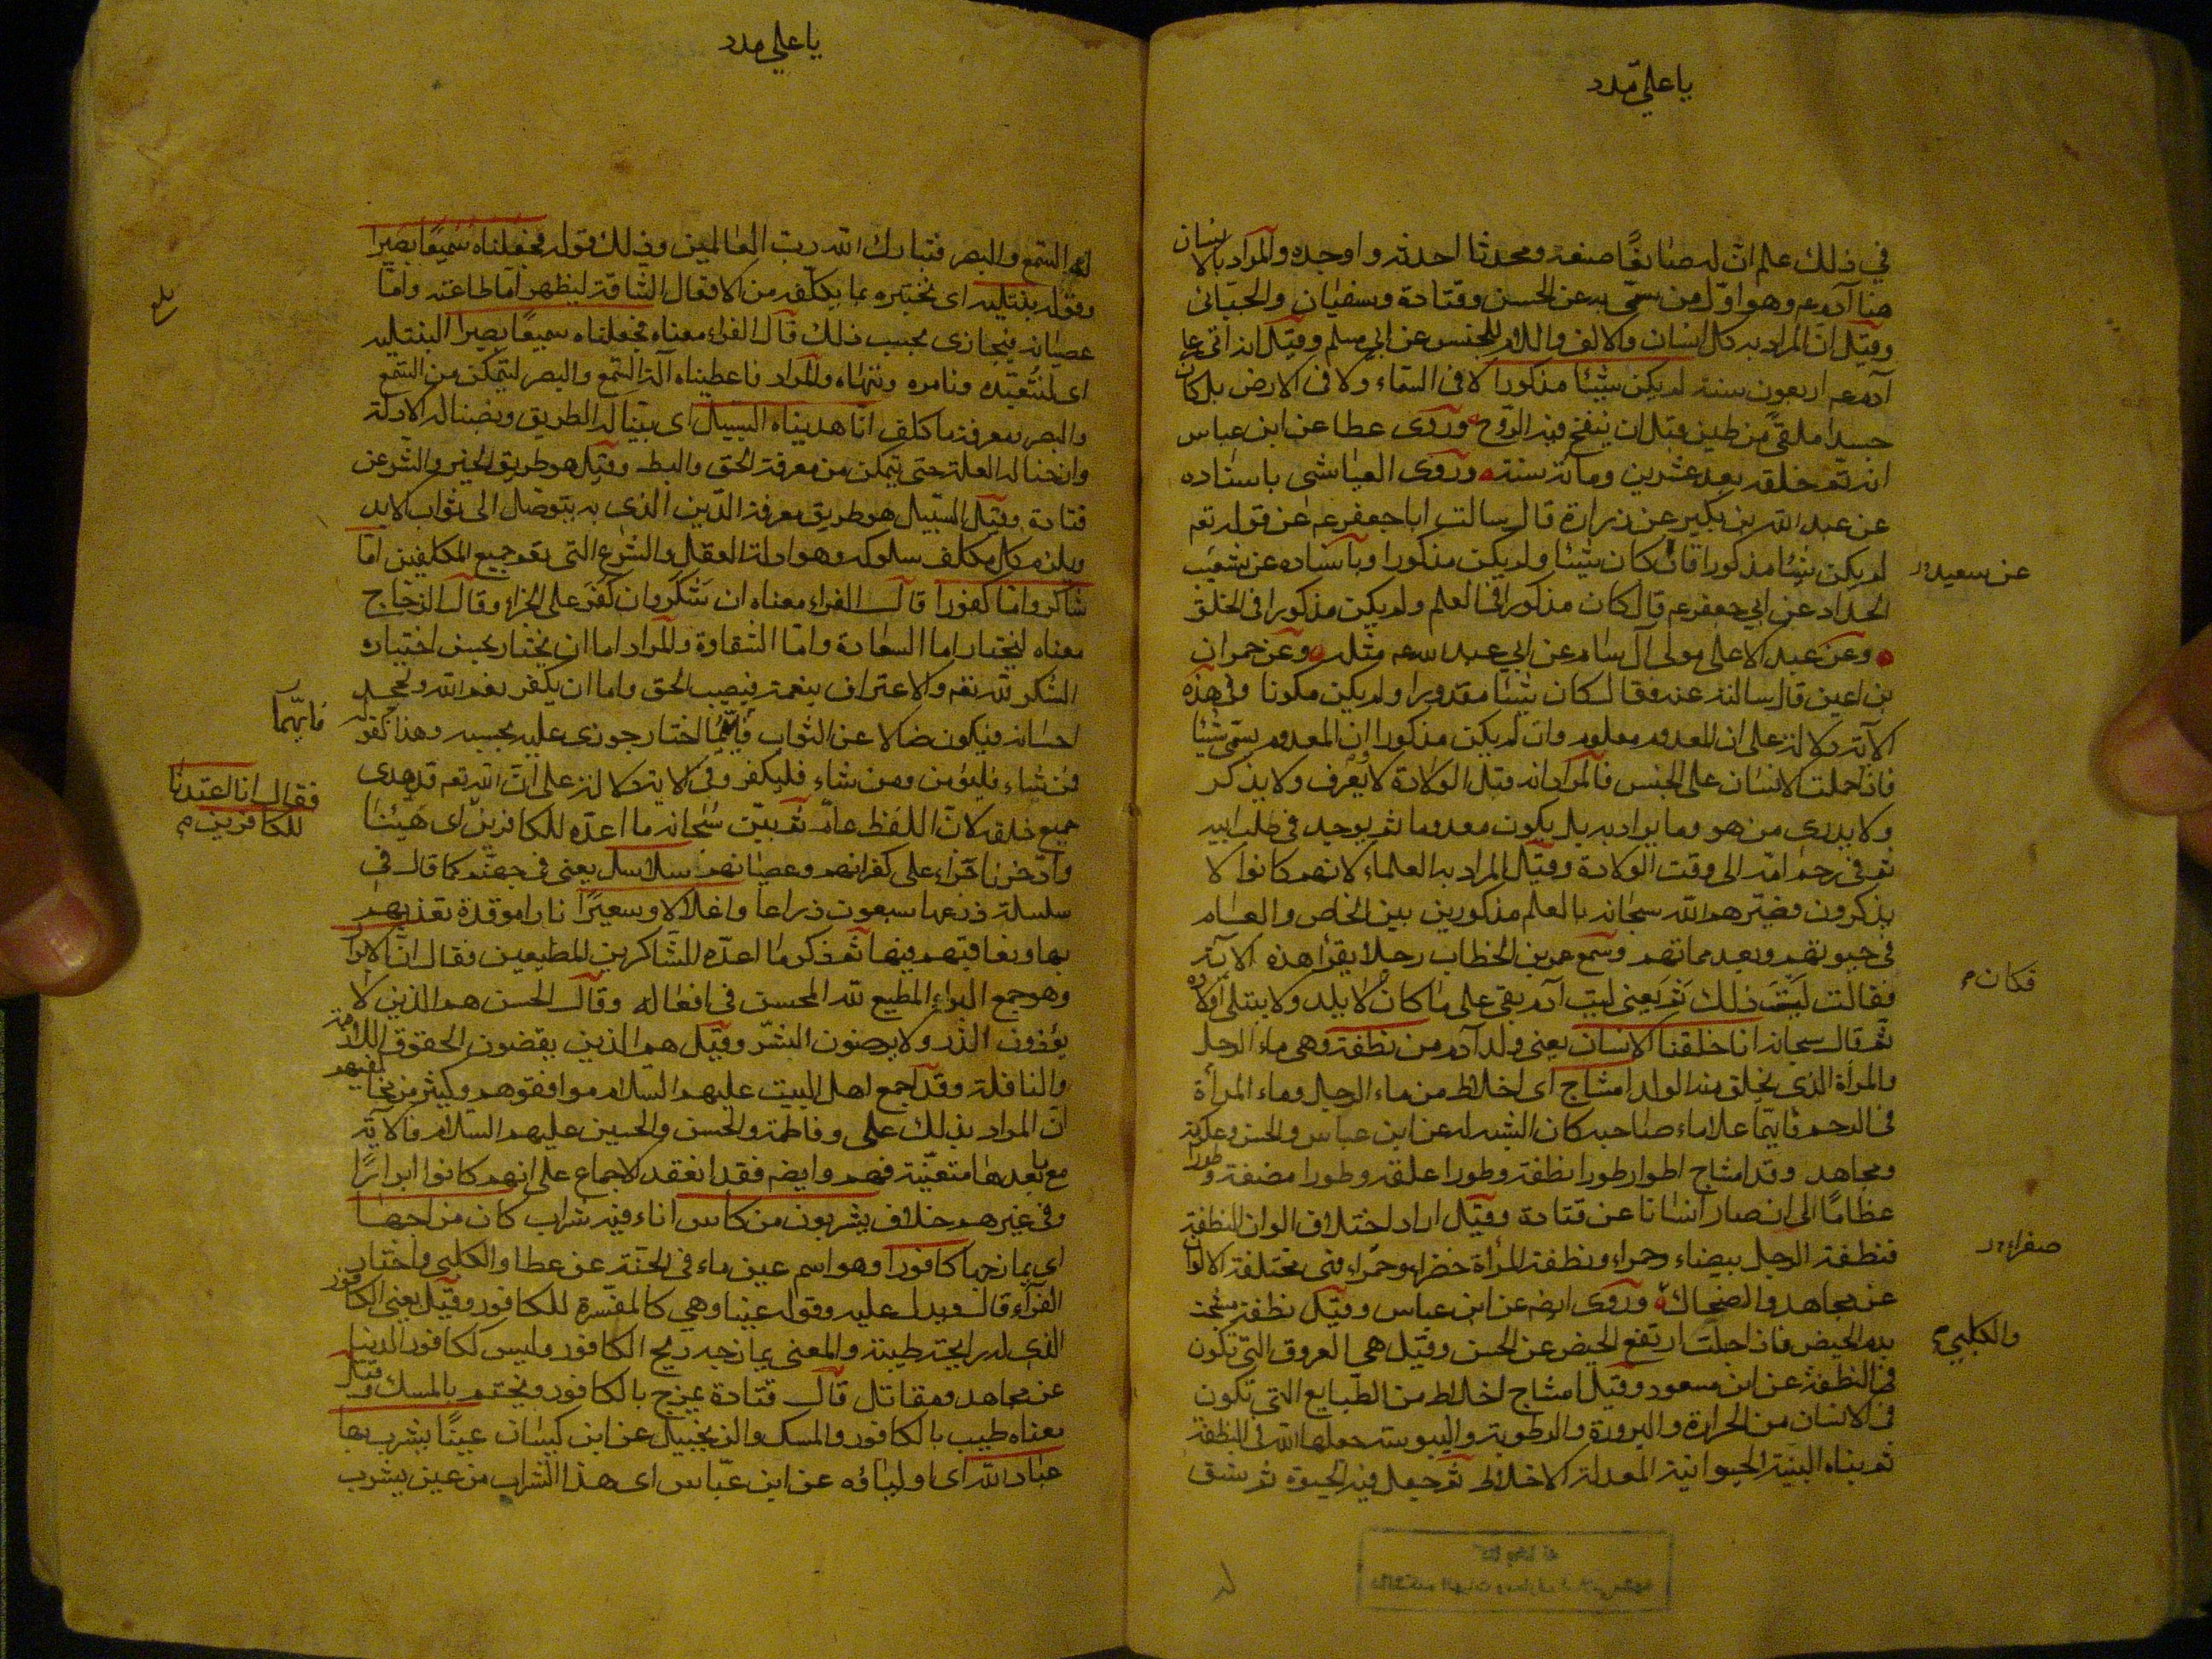 يا علي مدد
في ذلك علم ان له صانعًا صنعه ومحدثا احدثه واوجده والمراد بالانسان
هنا آدم عم وهو اول من سمي به عن الحسن وقتادة وسفيان والجبائى
وقيل ان المراد به كل انسان والالف واللام للجنس عن ابى مسلم وقيل انه اتى على
آدم عم اربعون سنة لم يكن شيئا مذكورا لا فى السماء ولا فى الارض بل كان
جسدا ملقىً من طين قبل ان ينفخ فيه الروح وروى عطا عن ابن عباس
انه تم خلقه بعد عشرين ومائة سنة وروى العياشى باسناده
عن عبد الله بن بكير عن زرارة قال سالت ابا جعفر عم عن قوله تعم
لم يكن شيئا مذكورا قال كان شيئا ولم يكن مذكورا وباسناده عن شعيب
عن سعيد
الحداد عن ابي جعفر عم قال كان مذكورا فى العلم ولم يكن مذكورا فى الخلق
وعن عبد الاعلى مولى آل سام عن ابي عبد الله عم مثله وعن حمران
بن اعين قال سالته عنه فقال كان شيئا مقدورا ولم يكن مكونا وفى هذه
الآية دلالة على ان المعدوم معلوم وان لم يكن مذكورا وان المعدوم يسمى شيئا
فاذا حملت الانسان على الجنس فالمراد انه قبل الولادة لا يعرف ولا يذكر
ولا يدرى من هو وما يراد به بل يكون معدوما ثم يوجد فى صلب ابيه
ثم فى رحم امه الى وقت الولادة وقيل المراد به العلماء لانهم كانوا لا
يذكرون فصيرهم الله سبحانه بالعلم مذكورين بين الخاص والعام
فى حيوتهم وبعد مماتهم وسمع عمر بن الخطاب رجلا يقرأ هذه الاية
فقالت ليت ذلك تم يعنى ليت آدم بقى على ما كان لا يلد ولا يبتلى اولاده
فكان م
ثم قال سبحانه انا خلقنا الانسان يعنى ولد آدم من نطفة وهى ماء الرجل
والمرأة الذى يخلق منه الولد امشاج اى اخلاط من ماء الرجل وماء المرأة
فى الرحم فايهما علا ماء صاحبه كان الشبه له عن ابن عباس والحسن وعكرمة
ومجاهد وقد امشاج اطوار طورا نطفة وطورا علقة وطورا مضغة وطورا
عظامًا الى ان صار انسانا عن قتادة وقيل اراد اختلاف الوان النطفة
فنطفة الرجل بيضاء وحمراء ونطفة المرأة خضراء وحمراء فهى مختلفة الالوان
صفراء
عن مجاهد والضحاك وروى ايضه عن ابن عباس وقيل نطفة مشجت
والكلبي م
بدم الحيض فاذا حبلت ارتفع الحيض عن الحسن وقيل هى العروق التى تكون
فى النطفة عن ابن مسعود وقيل امشاج اخلاط من الطبايع التى تكون
فى الانسان من الحرارة والبرودة والرطوبة واليبوسة جعلها الله فى النطفة
ثم بناه البنية الحيوانية المعدلة الاخلاط ثم جعل فيه الحيوة ثم شق
يا علي مدد
له السمع والبصر فتبارك الله رب العالمين وذلك قوله فجعلناه سميعًا بصيرا
وقوله نبتليه اى نختبره بما نكلفه من الافعال الشاقة ليظهر اما طاعته واما
بلغ
عصيانه فيجازى بحسب ذلك قال الفراء معناه فجعلناه سميعًا بصيرا لنبتليه
اى لنتعبده ونامره وننهاه والمراد فاعطيناه آلة السمع والبصر ليتمكن من السمع
والبصر ومعرفة ما كلف انا هديناه السبيل اى بينا له الطريق ونصبنا له الادلة
وازحنا له العلة حتى يتمكن من معرفة الحق والبط وقيل هو طريق الخير والشر عن
قتادة وقيل السبيل هو طريق معرفة الدين الذى به يتوصل الى ثواب الابد
ويلزم كل مكلف سلوكه وهو ادلة العقل والشرع التى يعم جميع المكلفين اما
شاكرا واما كفورا قال الفراء معناه ان شكر وان كفر على الجزاء وقال الزجاج
معناه ليختار اما السعادة واما الشقاوة والمراد اما ان يختار بحسن اختياره
الشكر لله تعم والاعتراف بنعمه فيصيب الحق واما ان يكفر نعم الله ويجحد
احسانه فيكون ضالا عن الثواب فايهما اختار جوزى عليه بحسبه وهذا كقوله
فايهما
فمن شاء فليؤمن ومن شاء فليكفر وفى الاية دلالة على ان الله تعم قد هدى
جميع خلقه لان اللفظ عام ثم بين سبحانه ما اعده للكافرين اى هيئنا
فقال انا اعتدنا
للكافرين م
وادخرنا جزاء على كفرانهم وعصيانهم سلاسل يعنى فى جهنم كما قال فى
سلسلة ذرعها سبعون ذراعا واغلالا وسعيرًا نارا موقدة نعذبهم
بها ونعاقبهم فيها ثم ذكر ما اعده للشاكرين المطيعين فقال ان الابرار
وهو جمع البر المطيع لله المحسن فى افعاله وقال الحسن هم الذين لا
يؤذون الذر ولا يرضون الشر وقيل هم الذين يقضون الحقوق اللازمة
والنافلة وقد اجمع اهل البيت عليهم السلام وموافقوهم وكثير من مخالفيهم
ان المراد بذلك على وفاطمة والحسن والحسين عليهم السلام فالآية
مع ما بعدها متعينة فيهم وايضه فقد انعقد الاجماع على انهم كانوا ابرارًا
وفى غيرهم خلاف يشربون من كاس اناء فيه شراب كان مزاجها
اى يمازجها كافورا وهو اسم عين ماء فى الجنة عن عطا والكلبى واختاره
الفراء قال ويدل عليه وقوله عينا وهي كالمفسرة للكافور وقيل يعنى الكافور
الذى له رايحة طيبة والمعنى يمازجه ريح الكافور وليس ككافور الدنيا
عن مجاهد ومقاتل قال قتادة يمزج بالكافور ويختم بالمسك وقيل
معناه طيب بالكافور والمسك والزنجبيل عن ابن كيسان عينًا يشرب بها
عباد الله اى اولياؤه عن ابن عباس اى هذا الشراب من عين يشرب